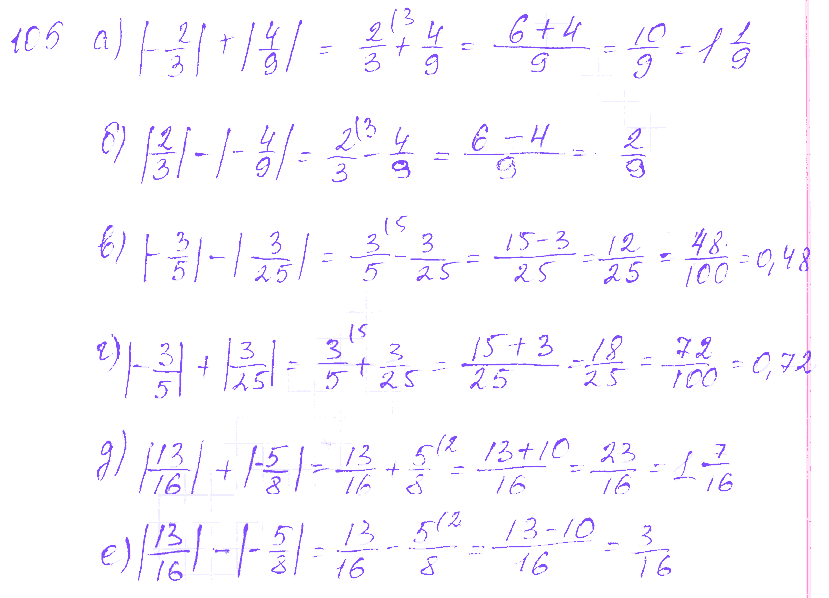 105 а) |-2/3| + |4/9| = 2/3 (3 + 4/9 = (6+4)/9 = 10/9 = 1 1/9
б) |2/3| - |-4/9| = 2/3 (3 - 4/9 = (6-4)/9 = 2/9
в) |-3/5| - |3/25| = 3/5 (5 - 3/25 = (15-3)/25 = 12/25 = 48/100 = 0,48
г) |-3/5| + |3/25| = 3/5 (5 + 3/25 = (15+3)/25 = 18/25 = 72/100 = 0,72
д) |13/16| + |-5/8| = 13/16 + 5/8 (2 = (13+10)/16 = 23/16 = 1 7/16
е) |13/16| - |-5/8| = 13/16 - 5/8 (2 = (13-10)/16 = 3/16